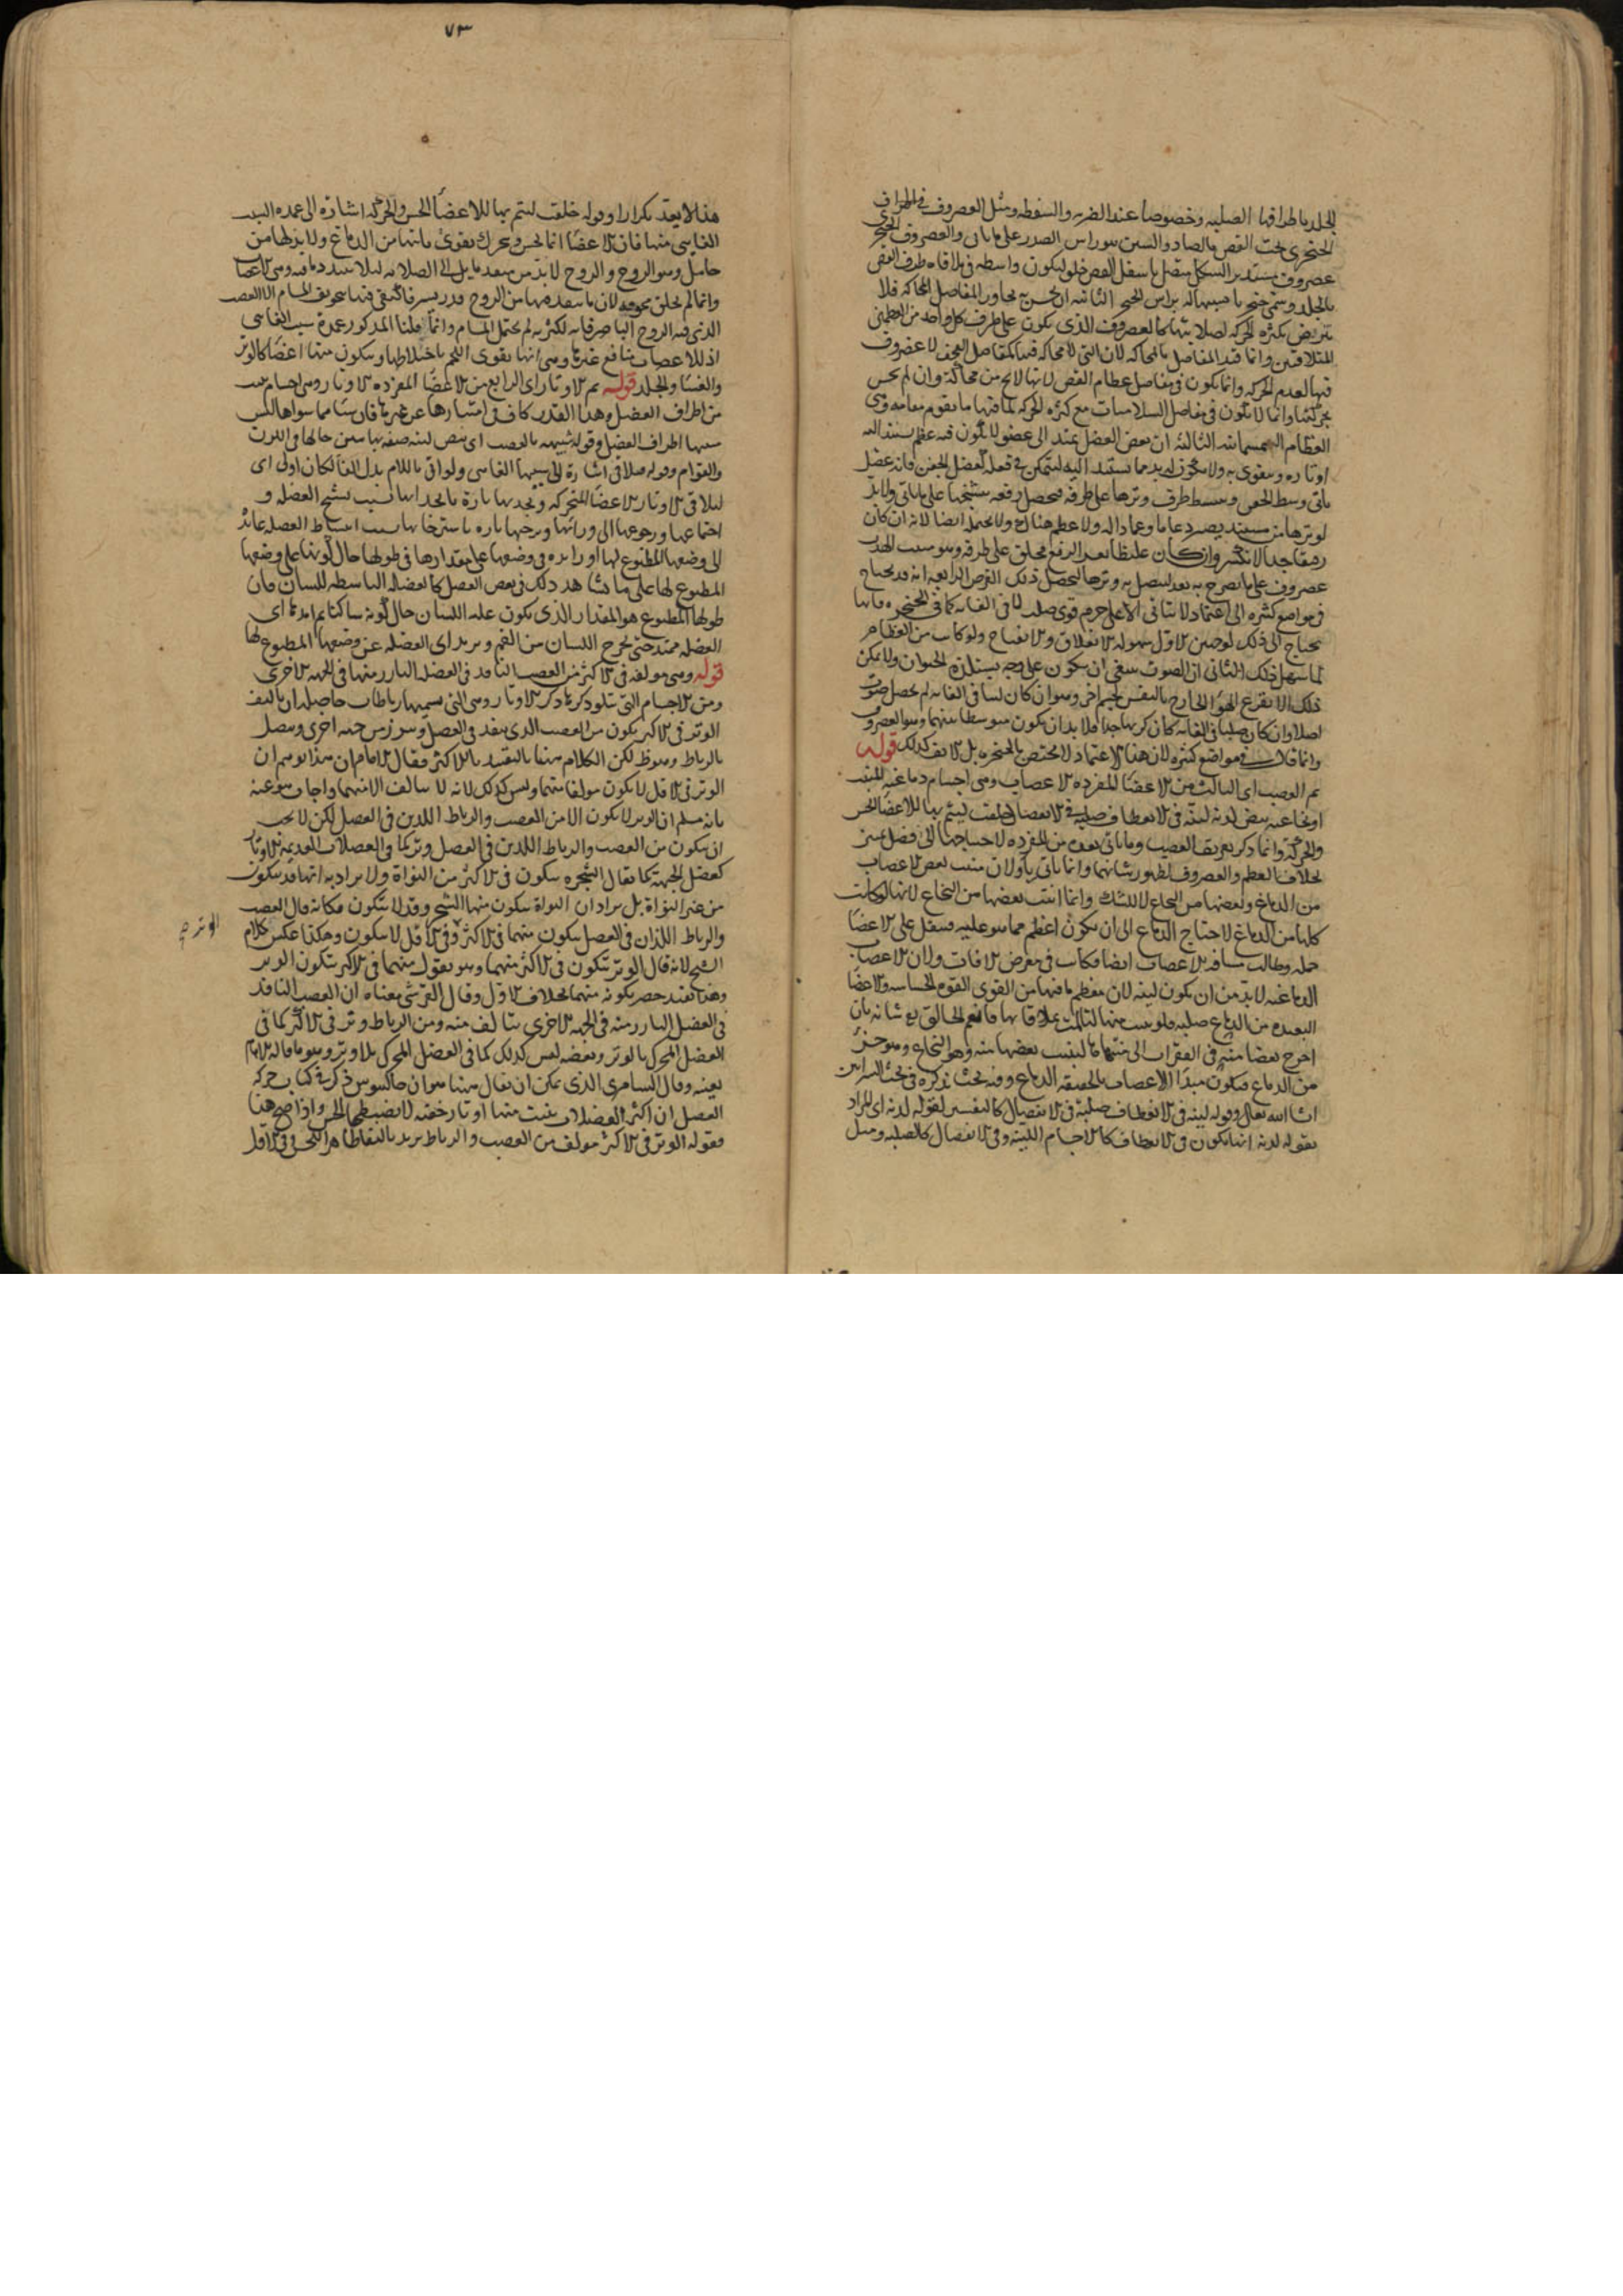 الجلد باطرافها الصلبه وخصوصا عند الضربه والسقطه ومثل الغضروف في اطراف
الخنجرى تحت القص بالصاد والسين هو راس الصدر على ما بان والغضروف الخنجرى
غضروف مستدير الشكل متصل باسفل القص خلو ليكون واسطه في ملاقاه طرف القص
بالجلد وسمى خنجريا تشبيها له براس الخنجر الثانيه ان يحسن تجاور المفاصل المحاكه فلا
تترضض بكثره الحركه لصلابتها كالغضروف الذى يكون على طرف كل واحد من العظمين
المتلاقيين وانما قيد المفاصل بالمحاكه لان التى لا محاكه فيها كمفاصل القحف لا غضروف
فيها لعدم الحركه وانما يكون في مفاصل عظام القص لانها لا يخ من محاكة وان لم يحس
بحركتها وانما لا يكون في مفاصل السلاميات مع كثره الحركه لما فيها ما يقوم مقامه وهى
العظام السمسمانيه الثالثه ان بعض العضل يمتد الى عضو لا يكون فيه عظم يستند اليه
اوتاره ويتقوى به ولا يكون له بد مما يستند اليه ليتمكن في فعله كعضل الجفن فانه عضل
ياتى وسط الجفن وينبسط طرف وترها على طرفه فيحصل رفعه بتشنجها على ما ياتى ولا بد
لوترها من مستند يصير دعاما وعمادا له ولا عظم هناك ولا يحتمله ايضا لانه ان كان
رقيقا جدا لانكسر وان كان غليظا تعذر الرفع فخلق على طرفه وهو منبت الهدب
غضروف على ما يصرح به بعد ليتصل به وترها ليحصل ذلك الغرض الرابعه انه قد يحتاج
في مواضع كثيره الى اعتماد لا يتاتى الا على جرم قوى صلب لا في الغايه كما في الحنجره فانها
تحتاج الى ذلك لوجهين الاول سهوله الانغلاق والانفتاح ولو كانت من العظام
لما سهل ذلك الثانى ان الصوت ينبغى ان يكون على وجه يستلذه الحيوان ولا يمكن
ذلك الا بقرع الهوا الخارج بالنفس لجسم اخر وهو ان كان لينا في الغايه لم يحصل صوت
اصلا وان كان صلبا في الغايه كان كريها جدا فلا بد ان يكون متوسطا بينهما وهو الغضروف
وانما قلت في مواضع كثيره لان هذا الاعتماد لا يختص بالحنجره بل الانف كذلك قوله
ثم العصب اى الثالث من الاعضا المفرده الاعصاب وهى اجسام دماغيه المنبت
او نخاعيه بيض لدنه لينه في الانعطاف صلبه في الانفصال خلقت ليتم بها للاعضا الحس
والحركه وانما ذكر تعريف العصب وما ياتى بعده من المفرده لاحتياجها الى فضل تميز
بخلاف العظم والغضروف لظهور شانهما وانما ياتى باو لان منبت بعض الاعصاب
من الدماغ وبعضها من النخاع لا للشك وانما انبت بعضها من النخاع لانها لو كانت
كلها من الدماغ لاحتاج الدماغ الى ان يكون اعظم مما هو عليه فيثقل على الاعضا
حمله وطالت مسافه الاعصاب ايضا فكانت في معرض الافات ولان الاعصاب
الدماغيه لا بد من ان يكون لينه لان معظم ما فيها من القوى القوه الحساسه والاعضا
البعيده من الدماغ صلبه فلو نبت منها لتالمت بملاقاتها فانعم الخالق تع شانه بان
اخرج بعضا منه في الفقرات الى منتها ما لينبت بعضها منه وهو النخاع وهو جزؤ
من الدماغ فيكون مبدا الاعصاب بالحقيقه الدماغ وفيه بحث نذكره في بحث الشرايين
ان شا الله تعالى وقوله لينه في الانعطاف صلبة في الانفصال كالتفسير لقوله لدنه اى المراد
بقوله لدنه انها يكون في الانعطاف كالاجسام اللينه وفي الانفصال كالصلبه ومثل
٧٣
هذا لا يعد تكرارا وقوله خلقت ليتم بها للاعضا الحس والحركه اشارة الى عمده السبب
الغايى منها فان الاعضا انما تحس وتحرك بقوى ماتيها من الدماغ ولا بد لها من
حامل وهو الروح والروح لا بد من منفذ مايل الى الصلابه ليلا يتبدد ما فيه وهى الاعصاب
وانما لم يخلق مجوفه لان ما ينفذ فيها من الروح قدر يسير فاكتفى فيها بتجويف المسام الا العصب
الذى فيه الروح الباصر فانه لكثرته لم يحتمل المسام وانما قلنا المذكور عمدة سبب الغايى
اذ للاعصاب منافع غيرها وهى انها يقوى اللحم باختلاطها ويتكون منها اعضا كالوتر
والغشا والجلد قوله ثم الاوتار اى الرابع من الاعضا المفرده الاوتار وهى اجسام ينبت
من اطراف العضل وهذا القدر كاف في امتيازها عن غيرها فان شيا مما سواها ليس
منبتها اطراف العضل وقوله شبيهه بالعصب اى بيض لينه صفه بها يبين حالها في اللون
والقوام وقوله فيلاقى اشارة الى سببها الغايى ولو اتى باللام بدل الفا لكان اولى اى
ليلاقى الاوتار للاعضا المتحركه ويجذبها بارة بانجذابها بسبب تشنج العضله و
اجتماعها ورجوعها الى ورائها ويرخيها تاره باسترخائها بسبب انبساط العضله عائدة
الى وضعها المطبوع لها او زائده في وضعها على مقدارها في طولها حال كونها على وضعها
المطبوع لها على ما نشاهد ذلك في بعض العضل كالعضله الباسطه للسان فان
طولها المطبوع هو المقدار الذى يكون عليه اللسان حال كونه ساكنا
العضله ممتد حتى يخرج اللسان من الفم ويزيد اى العضله عن وضعها المطبوع لها
قوله وهى مولفه في الاكثر من العصب النافذ في العضله البارز منها في الجهه الاخرى
ومن الاجسام التى تتلو ذكرها ذكر الاوتار وهى التى يسميها رباطات حاصله ان ما ليف
الوتر في الاكثر يكون من العصب الذى ينفذ في العضل ويبرز من جهه اخرى ويتصل
بالرباط وهو ظ لكن الكلام منا بالتقييد بالاكثر فقال الامام ان هذا يوهم ان
الوتر في الاقل لا يكون مولفا منهما وليس كذلك لانه لا يتالف الا منهما واجاب هو عنه
بانه مسلم ان الوتر لا يكون الا من العصب والرباط اللذين في العضل لكن لا يجب
ان يتكون من العصب والرباط اللذين في العضل وتر كما في العضلات العديمه الاوتار
كعضل الجبهه كما يقال الشجره يتكون في الاكثر من النواة ولا يراد به انها قد يتكون
من غير النواة بل يراد ان النواة يتكون منها الشجر وقد لا يتكون فكانه قال العصب
والرباط اللذان في العضل يتكون منهما في الاكثر وفي الاقل لا يتكون وهكذا عكس كلام
الوتر صح
الشيخ لانه قال الوتر يتكون في الاكثر منهما وهو يقول منهما في الاكثر يتكون الوتر
وهذا يفيد حصر تكونه منهما بخلاف الاول وقال القرشى معناه ان العصب النافذ
في العضل البارز منه في الجهه الاخرى يتالف منه ومن الرباط وتر في الاكثر كما في
العضل المحرك بالوتر وبعضه ليس كذلك كما في العضل المحرك بلا وتر وهو ما قاله الامام
بعينه وقال السامرى الذى يمكن ان يقال هيهنا هو ان جالينوس ذكر في كتاب حركه
العضل ان اكثر العضلات ينبت منها اوتار خفيه لا يضبطها الحس واذا صح هذا
فقوله الوتر في الاكثر مولف من العصب والرباط يريد بالنقاط في الاقل